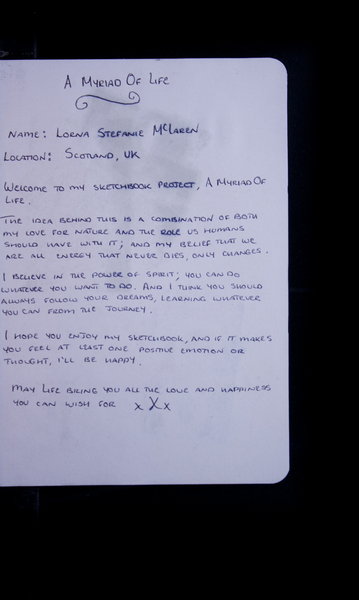 A MYRIAD OF LIFE
NAME: LORNA STEFANIE MCLAREN
LOCATION: SCOTLAND, UK
WELCOME TO MY SKETCHBOOK PROJECT, A MYRIAD OF
LIFE.
THE IDEA BEHIND THIS IS A COMBINATION OF BOTH
MY LOVE FOR NATURE AND THE ROLE US HUMANS
SHOULD HAVE WITH IT; AND MY BELIEF THAT WE
ARE ALL ENERGY THAT NEVER DIES, ONLY CHANGES.
I BELIEVE IN THE POWER OF SPIRIT; YOU CAN DO
WHATEVER YOU WANT TO DO. AND I THINK YOU SHOULD
ALWAYS FOLLOW YOUR DREAMS, LEARNING WHATEVER
YOU CAN FROM THE JOURNEY.
I HOPE YOU ENJOY MY SKETCHBOOK, AND IF IT MAKES
YOU FEEL AT LEAST ONE POSITIVE EMOTION OR
THOUGHT, I'LL BE HAPPY.
MAY LIFE BRING YOU ALL THE LOVE AND HAPPINESS
YOU CAN WISH FOR xXx